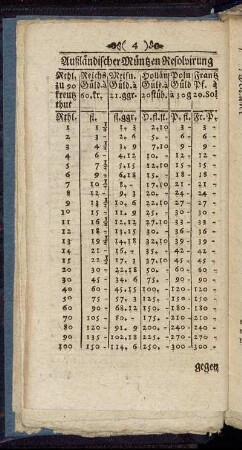 ( 4 )
Außländischer Müntzen Resolvirung
Rthl. Reichs Meisn. Hollän Poln Frantz
zu 90 Güld. à Güld. à Gülz. à Güld Pf. à
kreutz 60.kr. 21.ggr. 20stüb. à 30 g 20. Sol
thut fl. fl.ggr. D.fl.st. P. fl. Fr. P.
1 1½ 1. 3 2.10 3. - 3. -
2 3 - 2. 6 5. - 6. - 6. -
3 4½ 3. 9 7.10 9. - 9. -
4 6 - 4.12 10. - 12. - 12. -
5 7½ 5.15 12.10 15. - 15. -
6 9 - 6.18 15. - 18. - 18. -
7 10½ 8. - 17.10 21. - 21. -
8 12 - 9. 3 20. - 24. - 24. -
9 13½ 10. 6 22.10 27. - 27. -
10 15 - 11. 9 25. - 30. - 30. -
11 16½ 12.12 27.10 33. - 33. -
12 18 - 13.15 30. - 36. - 36. -
13 19½ 14.18 32.10 39. - 39. -
14 21 - 16. - 35. - 42. - 42. -
15 22½ 17. 3 37.10 45. - 45. -
20 30 - 22.18 50. - 60. - 60. -
30 45 - 34. 6 75. - 90. - 90. -
40 60 - 45.15 100. - 120. - 120. -
50 75 - 57. 3 125. - 150. - 150. -
60 90 - 68.12 150. - 180. - 180. -
70 105 - 80. - 175. - 210. - 210. -
80 120 - 91. 9 200. - 240. - 240. -
90 135 - 102.18 225. - 270. - 270. -
100 150 - 114. 6 250. - 300. - 300. -
gegen